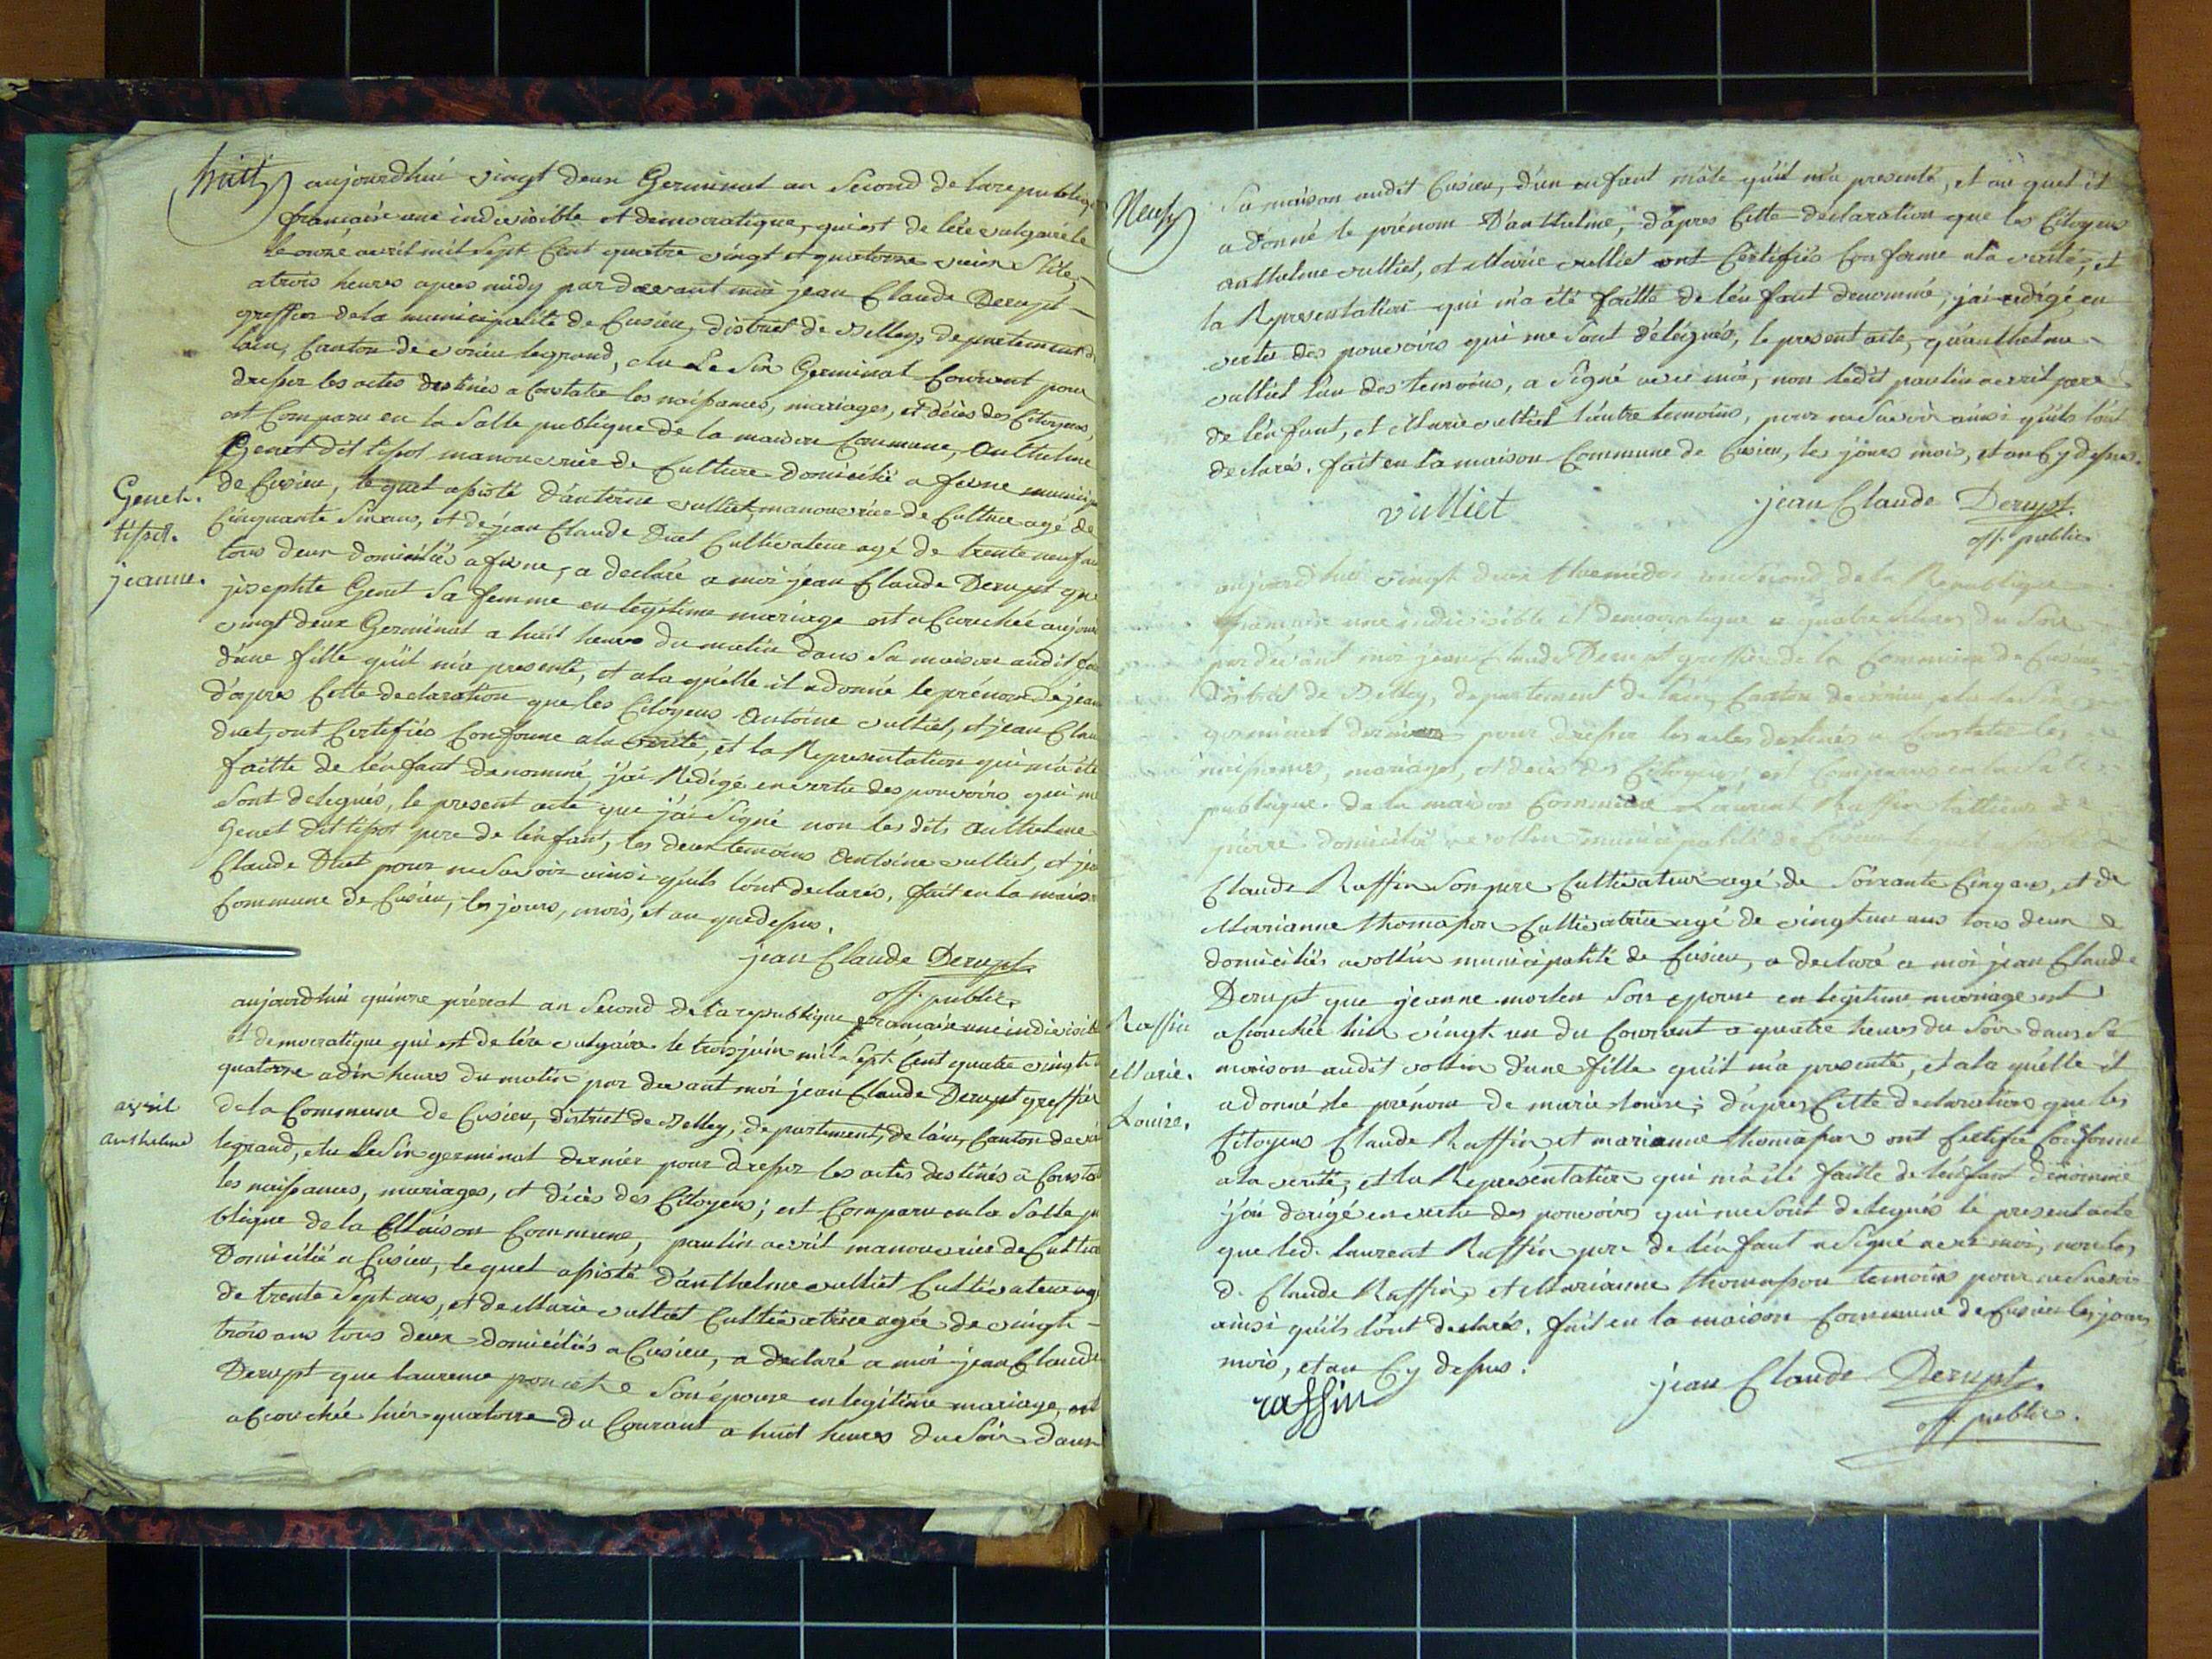 huit
aujourdhui vingt deux Germinal an Second de la republique
française une indivisible et démocratique, qui est de l'ère vulgaire le
le onze avril mil sept Cent quatre vingt et quatorze vieux Stile,
a trois heures apres midy par devant moi jean Claude Derupt
greffier de la municipalité de Cusieu, district de Belley, departement de
lain, Canton de virieu legrand, elu Le Six Germinal Courant pour
dresser les actes destinés a Constater les naissances, mariages, et décès des Citoyens,
est Comparu en la Salle publique de la maison Commune, Anthelme
Genet dit tissot manouvrier de Culture domicilié a
Genet.
tissot.
jeanne.
de Cusieu, lequel assisté d'antoine vulliet, manouvrier de Culture agé de
Cinquante Six ans, et de jean Claude Duet Cultivateur agé de trente neuf ans
tous deux domiciliés a, a declaré a moi jean Claude Derupt que
josephte Genet Sa femme en legitime mariage est acouchée aujourd
vingt deux Germinal a huit heures du matin dans Sa maison audit
d'une fille qu'il m'a presenté, et a la quelle il a donné le prénom de jean
d'apres Cette declaration que les Citoyens Antoine vulliet, et jean Clau
duet, ont Certifiés Conforme a la verité, et la Representation qui m'a été
faitte de l'enfant denommé, j'ai Redigé en vertu des pouvoirs qui me
Sont delegués, le present acte que j'ai Signé non les dits Anthelme
Genet Dit tissot pere de l'enfant, les deux temoins Antoine vulliet, et jean
Claude Duet pour ne Savoir ainsi qu'ils l'ont declarés, fait en la maison
Commune de Cusieu, les jours, mois, et an que dessus.
jean Claude Derupt
off. public.
aujourdhui quinze prérial an Second de la republique française une indivisible
et democratique qui est de l'ère vulgaire le trois juin mil Sept Cent quatre vingt
quatorze a dix heures du matin par devant moi jean Claude Derupt greffier
avril
anthelme
de la Commune de Cusieu, district de Belley, departement de lain, Canton de
legrand, elu Le Six germinal dernier pour dresser les actes destinés a Constater
les naissances, mariages, et décès des Citoyens; est Comparu en la Salle pu
blique de la Maison Commune, paulin avril manouvrier de Culture
Domicilié a Cusieu, lequel assisté d'anthelme vulliet Cultivateur agé
de trente Sept ans, et de Marie vulliet Cultivatrice agée de vingt
trois ans tous deux domiciliés a Cusieu, a declaré a moi jean Claude
Derupt que laurence poncet Son épouse en legitime mariage, est
acouchée hier quatorze du Courant a huit heures du Soir dans
Neuf
Sa maison audit Cusieu, d'un enfant mâle qu'il m'a presenté, et au quel il
a donné le prénom D'anthelme, d'apres Cette déclaration que les Citoyens
anthelme vulliet, et Marie vulliet ont Certifiés Conforme a la verité, et
la Representation qui m'a été faitte de l'enfant denommé, j'ai redigé en
vertu des pouvoirs qui me Sont délégués, le present acte, qu'anthelme
vulliet l'un des temoins, a Signé avec moi, non ledit paulin avril pere
de l'enfant, et Marie vulliet l'autre temoins, pour ne Savoir ainsi qu'ils l'ont
declarés. fait en la maison Commune de Cusieu, les jours mois, et an Cy dessus.
vulliet
jean Claude Derupt.
off. public
aujourdhui vingt deux thermidor an Second de la Republique
française une indivisible et democratique a quatre heures du Soir
par devant moi jean Claude Derupt greffier de la Commune de Cusieu
district de Belley, departement de lain, Canton de virieu, elu le Six
germinal dernier pour dresser les actes destinés a Constater les
naissances, mariages, et décès des Citoyens, est Comparu en la Salle
publique de la maison Commune Laurent Raffin tailleur de
pierre domicilié a vollin municipalité de Cusieu lequel assisté de
Claude Raffin Son pere Cultivateur agé de Soixante Cinq ans, et de
Marianne thomasson Cultivatrice agé de vingt un ans tous deux
domiciliés a vollin municipalité de Cusieu, a declaré a moi jean Claude
Derupt que jeanne Son epouse en legitime mariage est
Raffin
Marie.
Louise.
acouchée hier vingt un du Courant a quatre heures du Soir dans Sa
maison audit vollin d'une fille qu'il m'a presenté, et a la quelle il
a donné le prénom de marie louise; d'apres Cette declaration que les
Citoyens Claude Raffin, et marianne thomasson ont Certifié Conforme
a la verité, et la Representation qui m'a été faitte de l'enfant denommé
j'ai dirigé en vertu des pouvoirs qui me Sont delegués le present acte
que led. laurent Raffin pere de l'enfant a Signé avec moi, non les
d. Claude Raffin, et Marianne thomasson temoins pour ne Savoir
ainsi qu'ils l'ont declarés. fait en la maison Commune de Cusieu les jours
mois, et an Cy dessus.
raffin
jean Claude Derupt.
off. public.